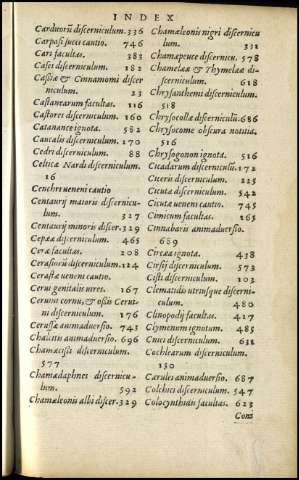 INDEX
Carduorū discerniculum. 336
Carposi succi cautio. 746
Cari facultas. 383
Casei discerniculum. 182
Cassiæ & Cinnamomi discer
niculum. 23
Castanearum facultas. 116
Castores discerniculum. 160
Catanance ignota. 582
Caucalis discerniculum. 170
Cedri discerniculum. 88
Celticæ Nardi discerniculum.
16
Cenchri ueneni cautio
Centaurij maioris discernicu-
lum. 327
Centaurij minoris discer. 329
Cepææ discerniculum. 465
Ceræ facultas. 208
Cerasiorū discerniculum. 124
Cerastæ ueneni cautio.
Cerui genitalis uires. 167
Ceruini cornu, & ossis Cerui-
ni discerniculum. 176
Cerussæ animaduersio. 745
Chalcitis animaduersio. 696
Chamæcissi discerniculum.
577
Chamædaphnes discernicu-
lum. 592
Chamæleonis albi discer. 329
Chamæleonis nigri discernicu
lum. 331
Chamæpeuce discernicu. 578
Chamelææ & Thymelææ di-
scerniculum. 618
Chrysanthemi discerniculum.
518
Chrysocollæ discerniculū. 686
Chrysocome obscura notitia.
516
Chrysogonon ignota. 516
Cicadarum discerniculū. 172
Ciceris discerniculum. 225
Cicutæ discerniculum. 542
Cicutæ ueneni cautio. 745
Cimicum facultas. 165
Cinnabaris animaduersio.
689
Circæa ignota. 438
Cirsij discerniculum. 573
Cisti discerniculum. 103
Clematidis utriusque discerni-
culum. 480
Clinopodij facultas. 417
Clymenum ignotum. 485
Cnici discerniculum. 631
Cochlearum discerniculum.
150
Cærulei animaduersio. 687
Colchici discerniculum. 547
Colocynthidis facultas. 623
Coni